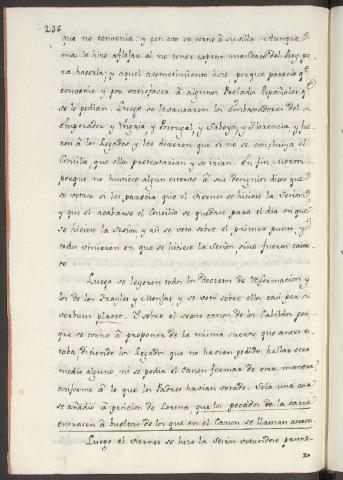 236
que no convenia: y con esto se tornò à su silla. Aunque
mas le hizo aflojar el no tener expreso mandato del Rey pa-
ra hacerla; y aquel acometimiento hizo porque pareciò q.e
convenia y por satisfacer à algunos Prelados Españoles q.e
se lo pedian. Luego se levantaron los Embaxadores del
Emperador y Ungria y Portugal, y Saboya, y Florencia y fue-
ron à los Legados y les dixeron que si no se concluia el
Concilio que ellos protestarian y se irian. En fin Moron
porque no huviese algun estorvo à sus designios dixo que
se votase si les parecia que el Viernes se hiciese la Sesion,
y que el acabarse el Concilio se quedase para el dia en que
se hiciese la Sesion y asi se voto sobre el primer punto, y
todos vinieron en que se hiciese la Sesion sino fueron cator-
ce.
Luego se leyeron todos los Decretos de Reformacion y
los de los Frayles y Monjas, y se votò sobre ellos casi per
verbum placet. Y sobre el sexto canon de los Cabildos por-
que se tornò à proponer de la misma suerte que antes es-
taba, diciendo los Legados que no havian podido hallar otro
medio alguno ni se podia el Canon formar de otra manera
conforme à lo que los Padres havian votado. Sola una cosa
se añadio à peticion de Lorena, que los pecados de la carne
entrasen à bueltas de los que en el Canon se llaman atroces.
Luego el Viernes se hizo la Sesion votandose prime-
ro